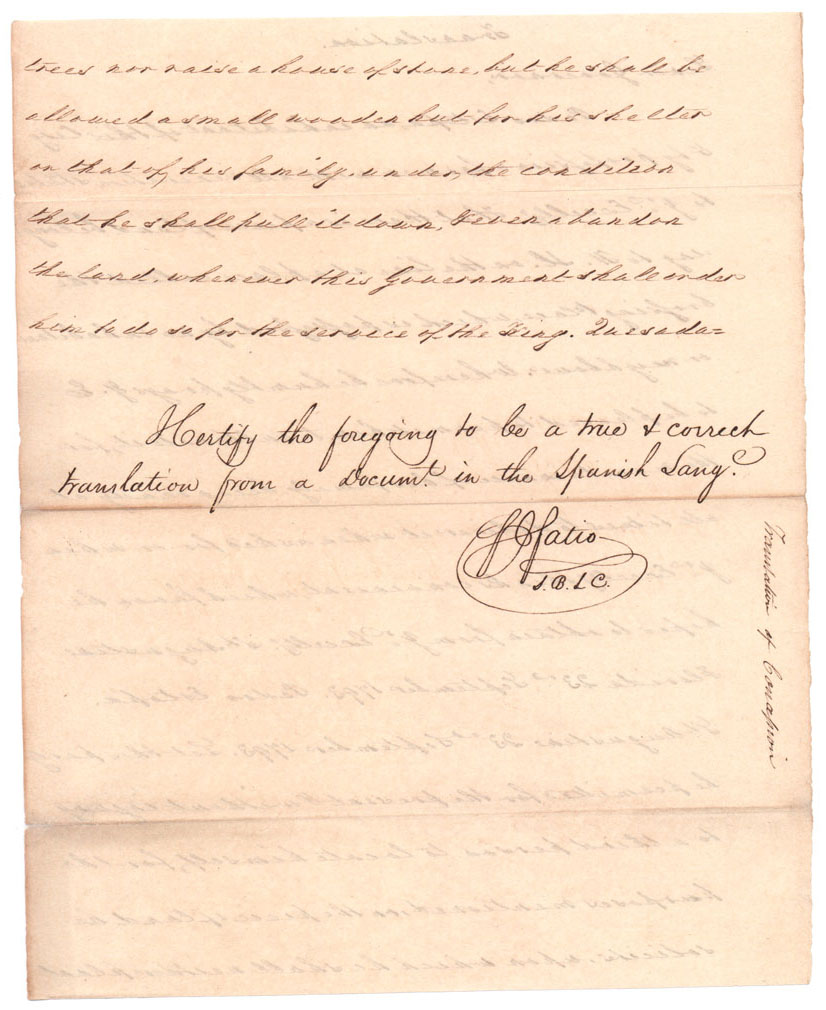 trees nor raise a house of stone, but he shall be
allowed a small wooden hut for his shelter
or that of his family, under the condition
that he shall pull it down, & even abandon
the land, whenever this Government shall order
him to do so for the service of the King. Quesada=
I Certify the foregoing to be a true & correct
translation from a Docum.t in the Spanish Lang.e
F J Fatio
S.B.L.C.
Translation of Concession